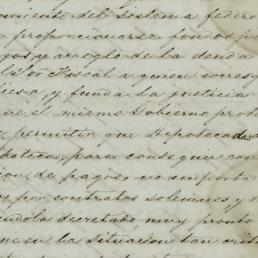 vimiento del sistema federa
a proporcionarse fondos pa
pago y arreglo de la deuda
Fiscal a quien corres
esa y funda la justicia
que el mismo Gobierno prote
permitir que Hipotecadas
poteca, para conseguir con
ion de pagos, no importa
por contratos solemnes y
endola decretado muy pronto
que en la situacion tan criti